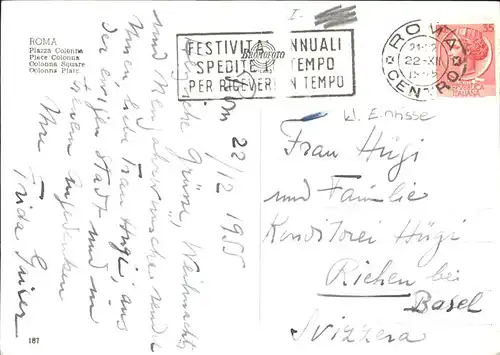 ROMA
Piazza Colonna
Place Colonna
Colonna Square
Colonna Platz
FESTIVITÀ ANNUALI
SPEDITE IN TEMPO
PER RICEVERE IN TEMPO
ROMA
22-XII
CENTRO
35
REPUBBLICA
ITALIANA
Rom 22/12 1955
Herzliche Grüsse, Weihnachts
und Neujahrswünsche sendet
Ihnen, liebe Frau Hügi, aus
der ewigen Stadt und in
treuem Angedenken
Ihre
Frida
Frau Hügi
und Familie
Konditorei Hügi
Riehen bei
Basel
Svizzera
187